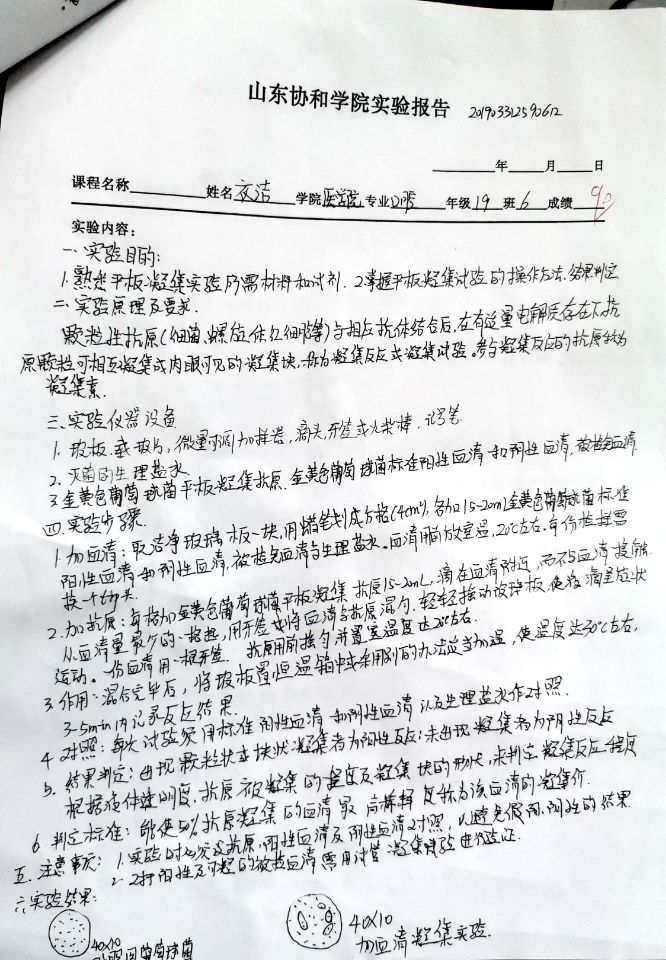 山东协和学院实验报告 201903312590612
年 月 日
课程名称 姓名 学院 医学院 专业 口腔 年级 19 班 6 成绩 90
实验内容：
一、实验目的：
1.熟悉平板凝集实验所需材料和试剂. 2.掌握平板凝集试验的操作方法.结果判定
二、实验原理及要求.
颗粒性抗原(细菌、螺旋体红细胞等)与相应抗体结合后,在有适量电解质存在下,抗
原颗粒可相互凝集成肉眼可见的凝集块,称为凝集反应或凝集试验。参与凝集反应的抗原称为
凝集素.
三、实验仪器设备
1. 玻板、载玻片,微量可调加样器,滴头,牙签或火柴棒,记号笔
2. 灭菌的生理盐水.
3.金黄色葡萄球菌平板凝集抗原.金黄色葡萄球菌标准阳性血清和阴性血清,被检血清
四.实验步骤.
1.加血清:取洁净玻璃板一块,用蜡笔划成方格(4cm²),各加15-20ml金黄色葡萄球菌标准
阳性血清和阴性血清,被检血清与生理盐水。血清用前放室温,20℃左右.每份检样需
换一个
2.加抗原:每格加金黄色葡萄球菌平板凝集抗原15-20mL,滴在血清附近,而不与血清接触.
从血清量最少的一格起,用牙签将血清与抗原混匀.轻轻摇动玻璃板,使液滴呈
运动。一份血清用一根牙签. 抗原用前摇匀并置室温度达20℃左右.
3.作用:混合完毕后,将玻板置恒温箱中或采用别的办法适当加温,使温度达30℃左右,
3-5min内记录反应结果.
4 对照:每次试验须用标准阳性血清和阴性血清以及生理盐水作对照.
5. 结果判定:出现颗粒状或块状凝集者为阳性反应;未出现凝集者为阴性反应
根据液体透明度、抗原被凝集的程度及凝集块的形状,来判定凝集反应程度
6 判定标准:能使50%抗原凝集的血清最高稀释度称为该血清的凝集价.
五.注意事项: 1.实验时必须设抗原,阳性血清及阴性血清对照,以避免假阳、阴性的结果
2.对阳性及可疑的被检血清需用试管凝集试验进行验证.
六.实验结果:
40X10
葡萄球菌
40X10
加血清凝集实验.